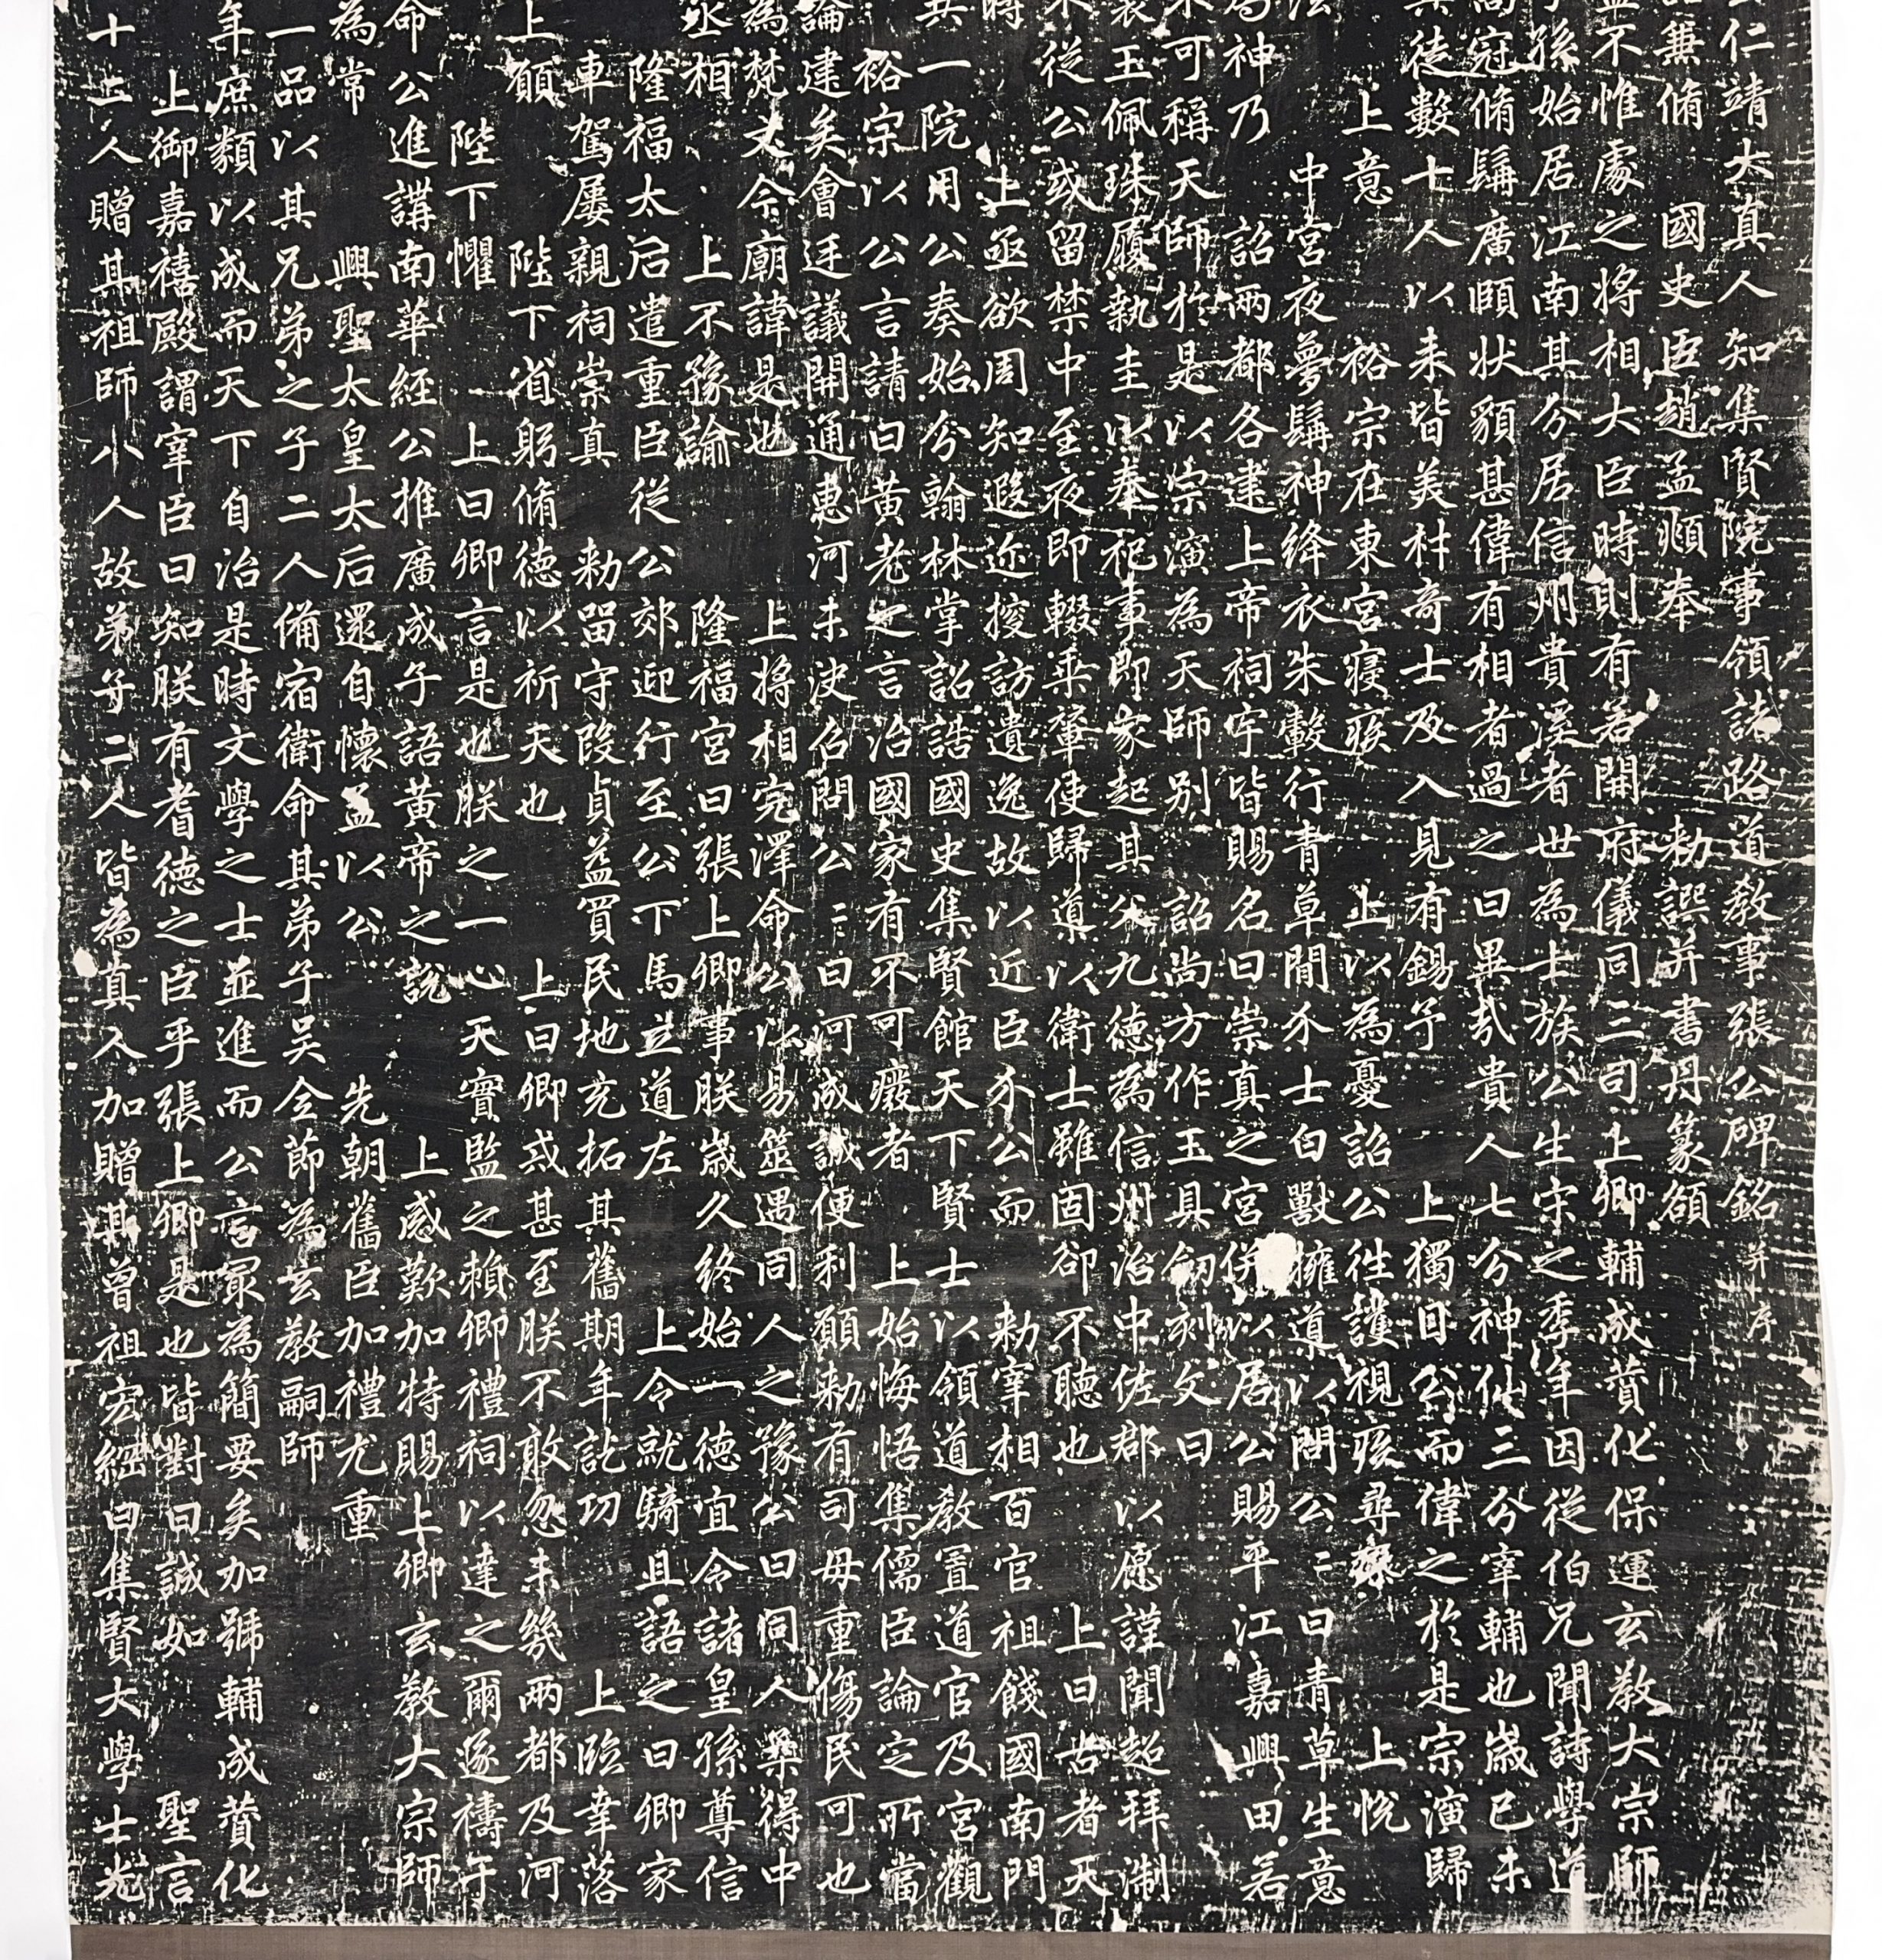 仁靖大真人知集賢院事領諸路道教事張公碑銘并序
兼脩國史臣趙孟頫奉敕譔并書丹篆額
不惟處之將相大臣時則有若開府儀同三司上卿輔成贊化保運玄教大宗師
孫始居江南其分居信州貴溪者世為士族公生宋之季年因從伯兄聞詩學道
冠脩髯廣頤狀貌甚偉有相者過之曰異哉貴人七分神仙三分宰輔也歲已未
其徒數十人以來皆美材奇士及入見有錫予上獨目公而偉之於是宗演歸
上意裕宗在東宮寢疾上以為憂詔公往護視疾尋瘳上悅
中宮夜夢髯神絳衣朱轂行青草間介士白獸擁道以問公二曰青草生意
神乃詔兩都各建上帝祠宇皆賜名曰崇真之宮俾以居公賜平江嘉興田若
不可稱天師於是以宗演為天師別詔尚方作玉具劒刻文曰
裳玉佩珠履執圭以奉祀事即家起其父九德為信州治中佐郡以愿謹聞超拜浙
從公或留禁中至夜即輟乘轝使歸導以衛士雖固卻不聽也上曰古者天
時上亟欲周知遐迩搜訪遺逸故以近臣介公而敕宰相百官祖餞國南門
共一院用公奏始分翰林掌詔誥國史集賢館天下賢士以領道教置道官及宮觀
裕宗以公言請曰黃老之言治國家有不可癈者上始悔悟集儒臣論定所當
論建矣會廷議開通惠河未決召問公二曰河成誠便利願敕有司毋重傷民可也
為梵文今廟諱是也上將相完澤命公以易筮遇同人之豫公曰同人柔得中
丞相上不豫諭隆福宮曰張上卿事朕歲久終始一德宜令諸皇孫尊信
隆福太后遣重臣從公郊迎行至公下馬立道左上令就騎且語之曰卿家
車駕屢親祠崇真敕留守段貞益買民地充拓其舊期年訖功上臨幸落
上願陛下省躬脩德以祈天也上曰卿戒甚至朕不敢忽未幾兩都及河
陛下懼上曰卿言是也朕之一心天實監之賴卿禮祠以達之爾遂禱于
命公進講南華經公推廣成子語黃帝之說上感歎加特賜上卿玄教大宗師
為常興聖太皇太后還自懷孟以公先朝舊臣加禮尤重
一品以其兄弟之子二人備宿衛命其弟子吴全節為玄教嗣師
年庶類以成而天下自治是時文學之士並進而公言最為簡要矣加號輔成贊化
上御嘉禧殿謂宰臣曰知朕有耆德之臣乎張上卿是也皆對曰誠如聖言
十二人贈其祖師八人故弟子二人皆為真人加贈其曾祖宏綱曰集賢大學士光